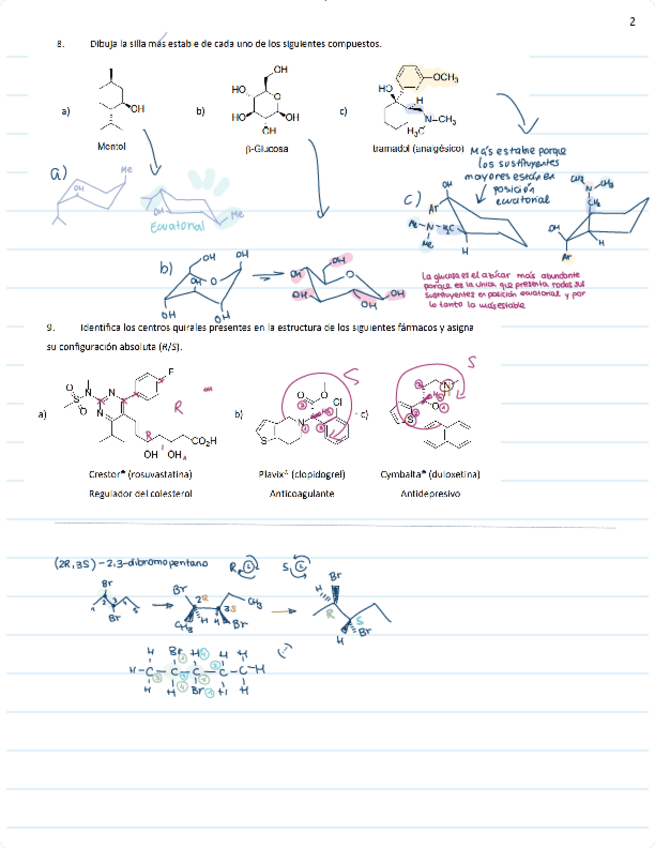 2
8. Dibuja la silla más estable de cada uno de los siguientes compuestos.
a) OH
Mentol
b) OH HO O HO OH OH
β-Glucosa
c) HO OCH₃ H N-CH₃ H₃C
tramadol (analgésico)
Más estable porque
los sustituyentes
mayores están en
posición
ecuatorial
a) OH Me
OH Me
Ecuatorial
c) OH Ar Me-N-H₂C Me H
CH₃ N-CH₃ CH₂ OH H Ar
b) OH OH OH O OH OH
OH OH O OH OH OH
La glucosa es el azúcar más abundante
porque es la única que presenta todos sus
sustituyentes en posición ecuatorial y por
lo tanto la más estable
9. Identifica los centros quirales presentes en la estructura de los siguientes fármacos y asigna
su configuración absoluta (R/S).
a) F O N S O N N R R CO₂H OH OH
b) O O Cl N S S
c) O S N S
Crestor® (rosuvastatina)
Regulador del colesterol
Plavix® (clopidogrel)
Anticoagulante
Cymbalta® (duloxetina)
Antidepresivo
(2R,3S)-2,3-dibromopentano R S
Br Br
Br 2R 3S CH₃ CH₃ H H Br
Br H R S H Br
H Br H H H
H-C-C-C-C-C-H
H H Br H H